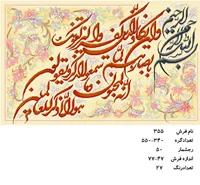 بسم الله الرحمن الرحیم
وان یکاد الذین کفروا لیزلقونک
بابصارهم لما سمعوا الذکر و یقولون
انه لمجنون
و ما هو الا ذکر للعالمین
نام فرش ۳۵۵
تعدادگره ۵۵۰-۳۴۰
رجشمار ۵۰
اندازه فرش ۷۷-۴۷
تعدادرنگ ۲۷